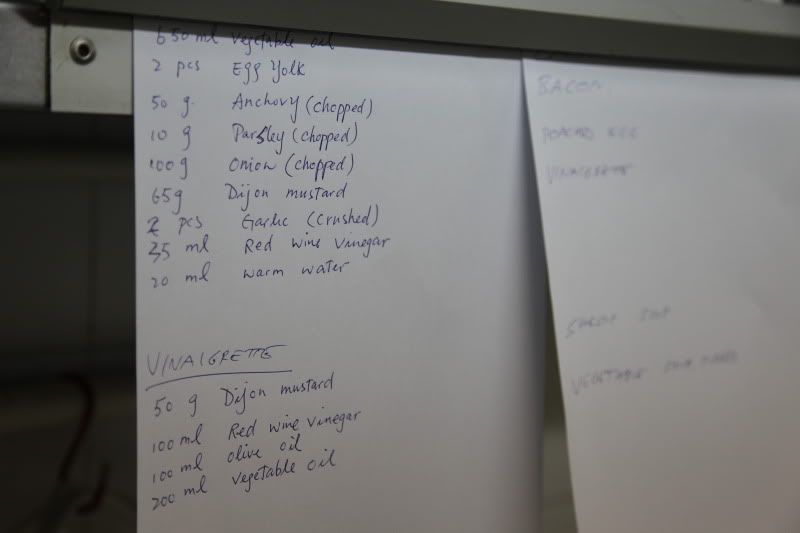 650 ml vegetable oil
2 pcs Egg Yolk
50 g. Anchovy (chopped)
10 g Parsley (chopped)
100 g Onion (chopped)
65g Dijon mustard
2 pcs Garlic (crushed)
35 ml Red wine vinegar
20 ml warm water
VINAIGRETTE
50 g Dijon mustard
100 ml Red wine vinegar
100 ml olive oil
200 ml vegetable oil
BACON
POACHED EGG
VINAIGRETTE
VEGETABLE